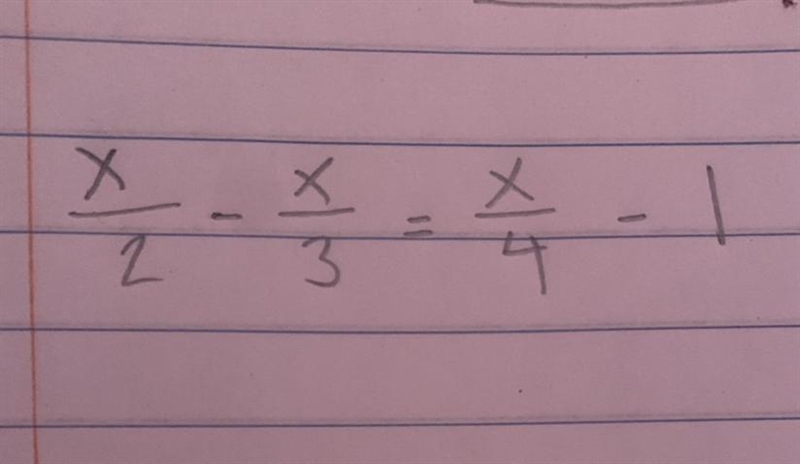 x/2 - x/3 = x/4 - 1